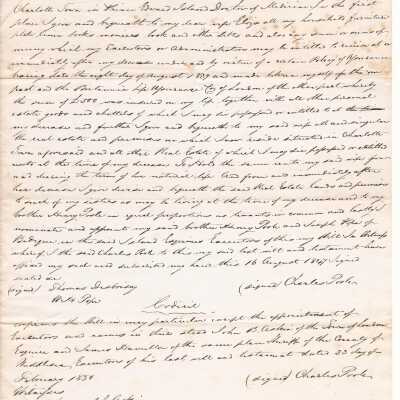 Charlotte Town in Prince Edward Island Doctor of Medicine In the first
place I give and bequeath to my dear wife Eliza all my household furniture
plate linen books monies book and other debts and also any sum or sums of
money which my Executors or Administrators may be entitled to receive at or
immediately after my decease under and by virtue of a certain Policy of Assurance
bearing date the eight day of August 1839 and made between myself of the one
part and the Britannia Life Assurance Coy of London of the other part whereby
the sum of was insured on my life together with all other personal
estate goods and chattels of which I may be possessed or entitled to at the time
my decease and further I give and bequeath to my said wife all and singular
the real estate and premises on which I now reside situated in Charlotte
Town aforesaid and all other Real Estate of which I may be possessed or entitled
unto at the time of my decease To Hold the same unto my said wife for
and during the term of her natural life And from and immediately after
her decease I give devise and bequeath the said Real Estate Lands and premises
to such of my sisters as may be living at the time of my decease and to my
brother Henry Poole in equal proportions as tenants in common and lastly I
nominate and appoint my said brother Henry Poole and Joseph Pope of
Bedeque in the said Island Esquires Executors of this my Will In Witness
whereof I the said Charles Poole to this my said last will and testament have
affixed my seal and subscribed my name this 16 August 1847 Signed
sealed &c
(signed) Thomas Desbrisay (signed) Charles Poole
W. H. Pope
Codicil
Will in any particular except the appointment of
Executors and names in their stead John B of the Town of London
Esquire and James of the same place Sheriff of the County of
Middlesex Executors of his last will and testament dated 22 day of
February 1850
Witnesses (signed) Charles Poole